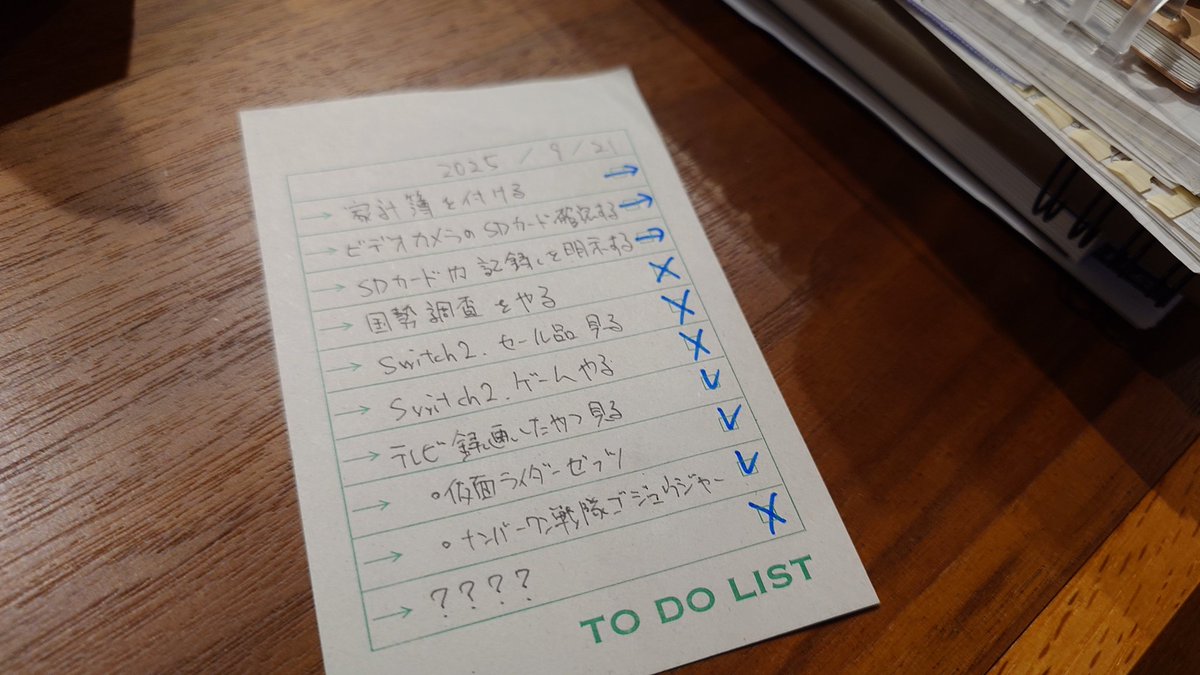 2025/9/21
→ 家計簿を付ける →
→ ビデオカメラのSDカード確認する →
→ SDカード内記録を明示する →
→ 国勢調査をやる ×
→ Switch2.セール品見る ×
→ Switch2.ゲームやる ×
→ テレビ録画したやつ見る ✓
→ 。仮面ライダーゼッツ ✓
→ 。ナンバーワン戦隊ゴジュウジャー ✓
→ ???? ×
TO DO LIST